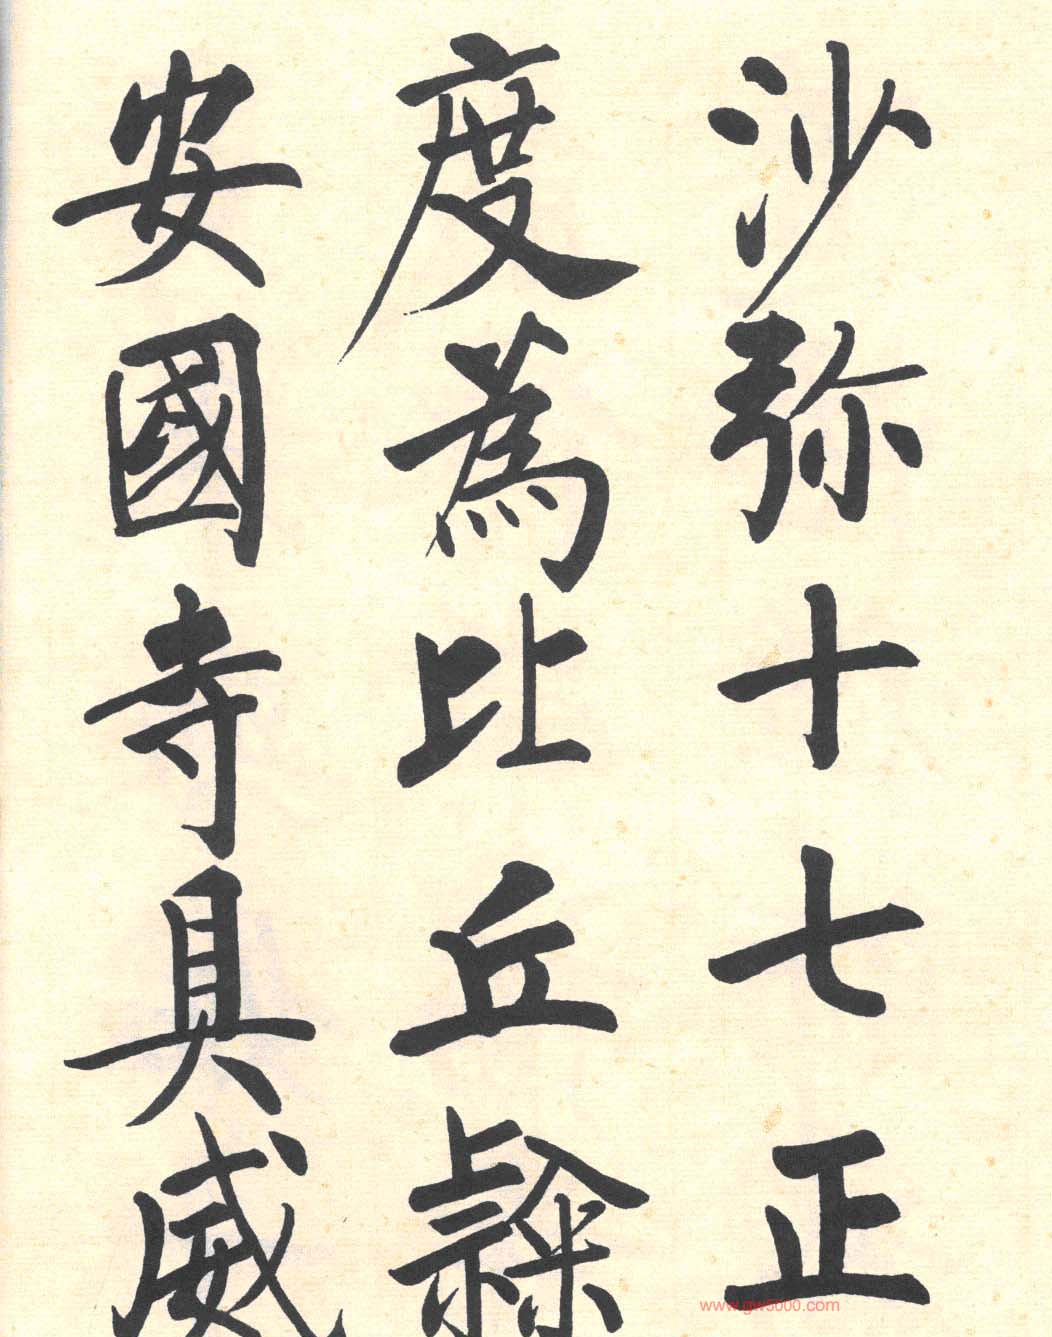 沙弥十七正
度為比丘隸
安國寺具威
www.gw5000.com